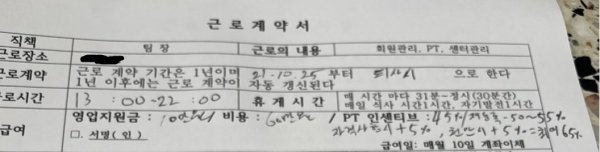 근로계약서
직책 팀장 근로의 내용 회원관리, PT, 센터관리
근로장소
근로계약 근로 계약 기간은 1년이며 21.10.25 부터 퇴사시 으로 한다
1년 이후에는 근로 계약이 자동 갱신된다
근로시간 13:00-22:00 휴게시간 매 시간 마다 31분-정시(30분간)
매일 식사 시간1시간, 자기발전1시간
급여 영업지원금: 10만원 비용: 60만원 / PT 인센티브: 45% -50~55%
□ 서명(인) +5%, +5% = 65%
급여일: 매월 10일 계좌이체